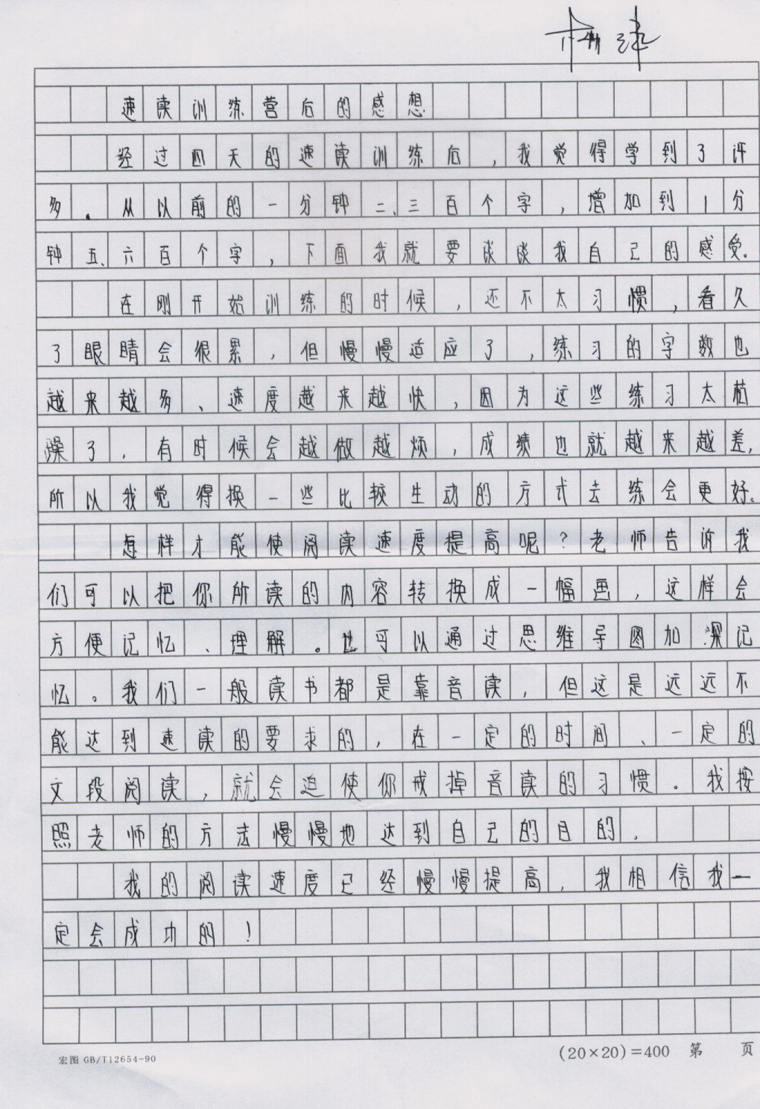 速读训练营后的感想
经过四天的速读训练后，我觉得学到了许
多。从以前的一分钟二、三百个字，增加到1分
钟五、六百个字，下面我就要谈谈我自己的感受。
在刚开始训练的时候，还不太习惯，看久
了眼睛会很累，但慢慢适应了，练习的字数也
越来越多、速度越来越快，因为这些练习太枯
燥了，有时候会越做越烦，成绩也就越来越差，
所以我觉得换一些比较生动的方式去练会更好。
怎样才能使阅读速度提高呢？老师告诉我
们可以把你所读的内容转换成一幅画，这样会
方便记忆、理解。也可以通过思维导图加深记
忆。我们一般读书都是靠音读，但这是远远不
能达到速读的要求的，在一定的时间、一定的
文段阅读，就会迫使你戒掉音读的习惯。我按
照老师的方法慢慢地达到自己的目的，
我的阅读速度已经慢慢提高，我相信我一
定会成功的！
宏图 GB/T12654-90
(20×20)=400 第 页